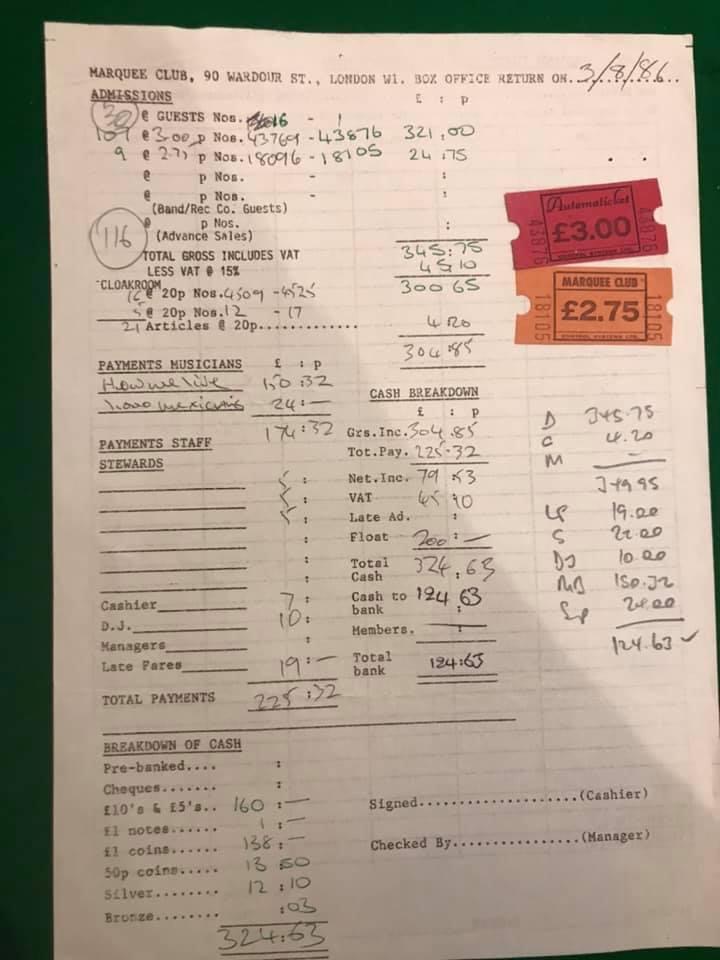 MARQUEE CLUB, 90 WARDOUR ST., LONDON W1. BOX OFFICE RETURN ON..3/8/86..
ADMISSIONS £ : p
30 @ GUESTS Nos. 16 - 1
107 @ 3.00 p Nos. 43769 - 43876 321.00
9 @ 2.75 p Nos. 18096 - 18105 24:75
@ p Nos. - :
@ p Nos. - :
(Band/Rec Co. Guests)
@ p Nos. :
116 (Advance Sales)
TOTAL GROSS INCLUDES VAT 345:75
LESS VAT @ 15% 45:10
CLOAKROOM 300 65
16 @ 20p Nos. 4509 - 4525
5 @ 20p Nos. 12 - 17
21 Articles @ 20p............. 4 20
304:85
Automaticket
43875 £3.00 43875
CONTROL SYSTEMS LTD.
MARQUEE CLUB
18105 £2.75 18105
CONTROL SYSTEMS LTD.
PAYMENTS MUSICIANS £ : p
How we live 150:32
novo mexicanis 24:—
174:32
PAYMENTS STAFF
STEWARDS
5 :
5 :
5 :
:
:
:
Cashier 7 :
D.J. 10 :
Managers :
Late Fares 19 :—
TOTAL PAYMENTS 225:32
CASH BREAKDOWN
£ : p
Grs.Inc. 304.85
Tot.Pay. 225.32
Net.Inc. 79 :53
VAT 45 :10
Late Ad. :
Float 200 :—
Total Cash 324.63
Cash to bank 124 63
Members. —
Total bank 124:63
D 345.75
C 4.20
M —
349.95
LF 19.00
S 22.00
DJ 10.00
MB 150.32
Sp 24.00
124.63 ✓
BREAKDOWN OF CASH
Pre-banked.... :
Cheques....... :
£10's & £5's.. 160 :—
£1 notes...... 1 :—
£1 coins...... 138 :—
50p coins..... 13 50
Silver........ 12 :10
Bronze........ :03
324:63
Signed....................(Cashier)
Checked By................(Manager)